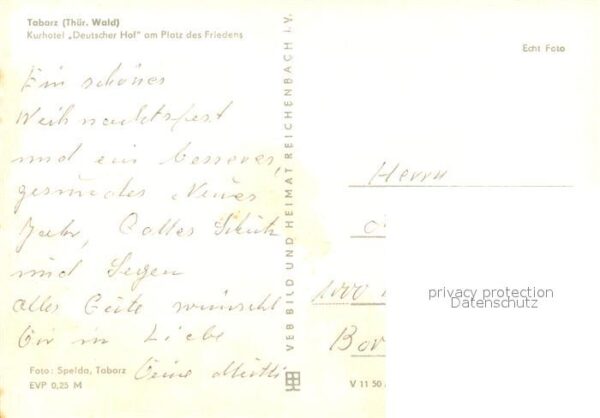 Tabarz (Thür. Wald)
Kurhotel „Deutscher Hof" am Platz des Friedens
Echt Foto
Ein schönes
Weihnachtsfest
und ein besseres,
gesundes Neues
Jahr, Gottes Schutz
und Segen
alles Gute wünscht
Dir in Liebe
Deine Mutti
Foto: Spelda, Tabarz
EVP 0,25 M
VEB BILD UND HEIMAT REICHENBACH I.V.
Herrn
1000
privacy protection
Datenschutz
Bor
V 11 50